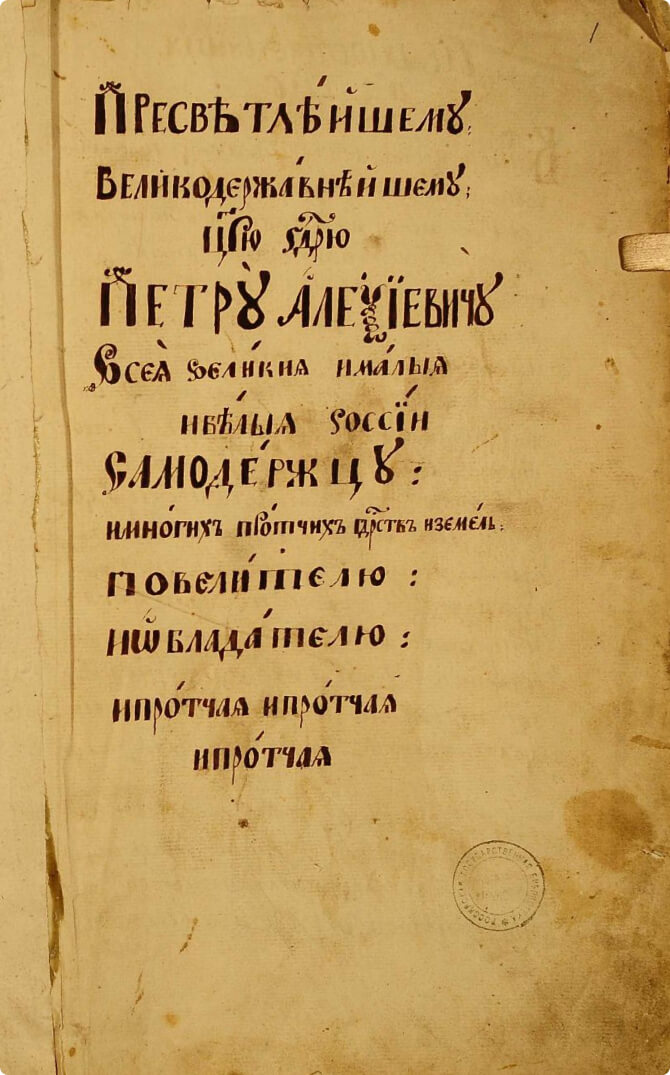 1
Пресвѣтлѣ́йшему,
Великодержа́внѣйшему,
Цр҃ю гдⷭ҇рю
Петрꙋ̀ Алеѯі́евичꙋ
Всеѧ̀ вели́кия има́лыя
ибѣ́лыя россі́и
самоде́ржцꙋ:
имно́гихъ про́тчихъ гдрⷭ҇твъ иземе́ль,
повели́телю:
иѡблада́телю:
ипро́тчая ипро́тчая
ипро́тчая